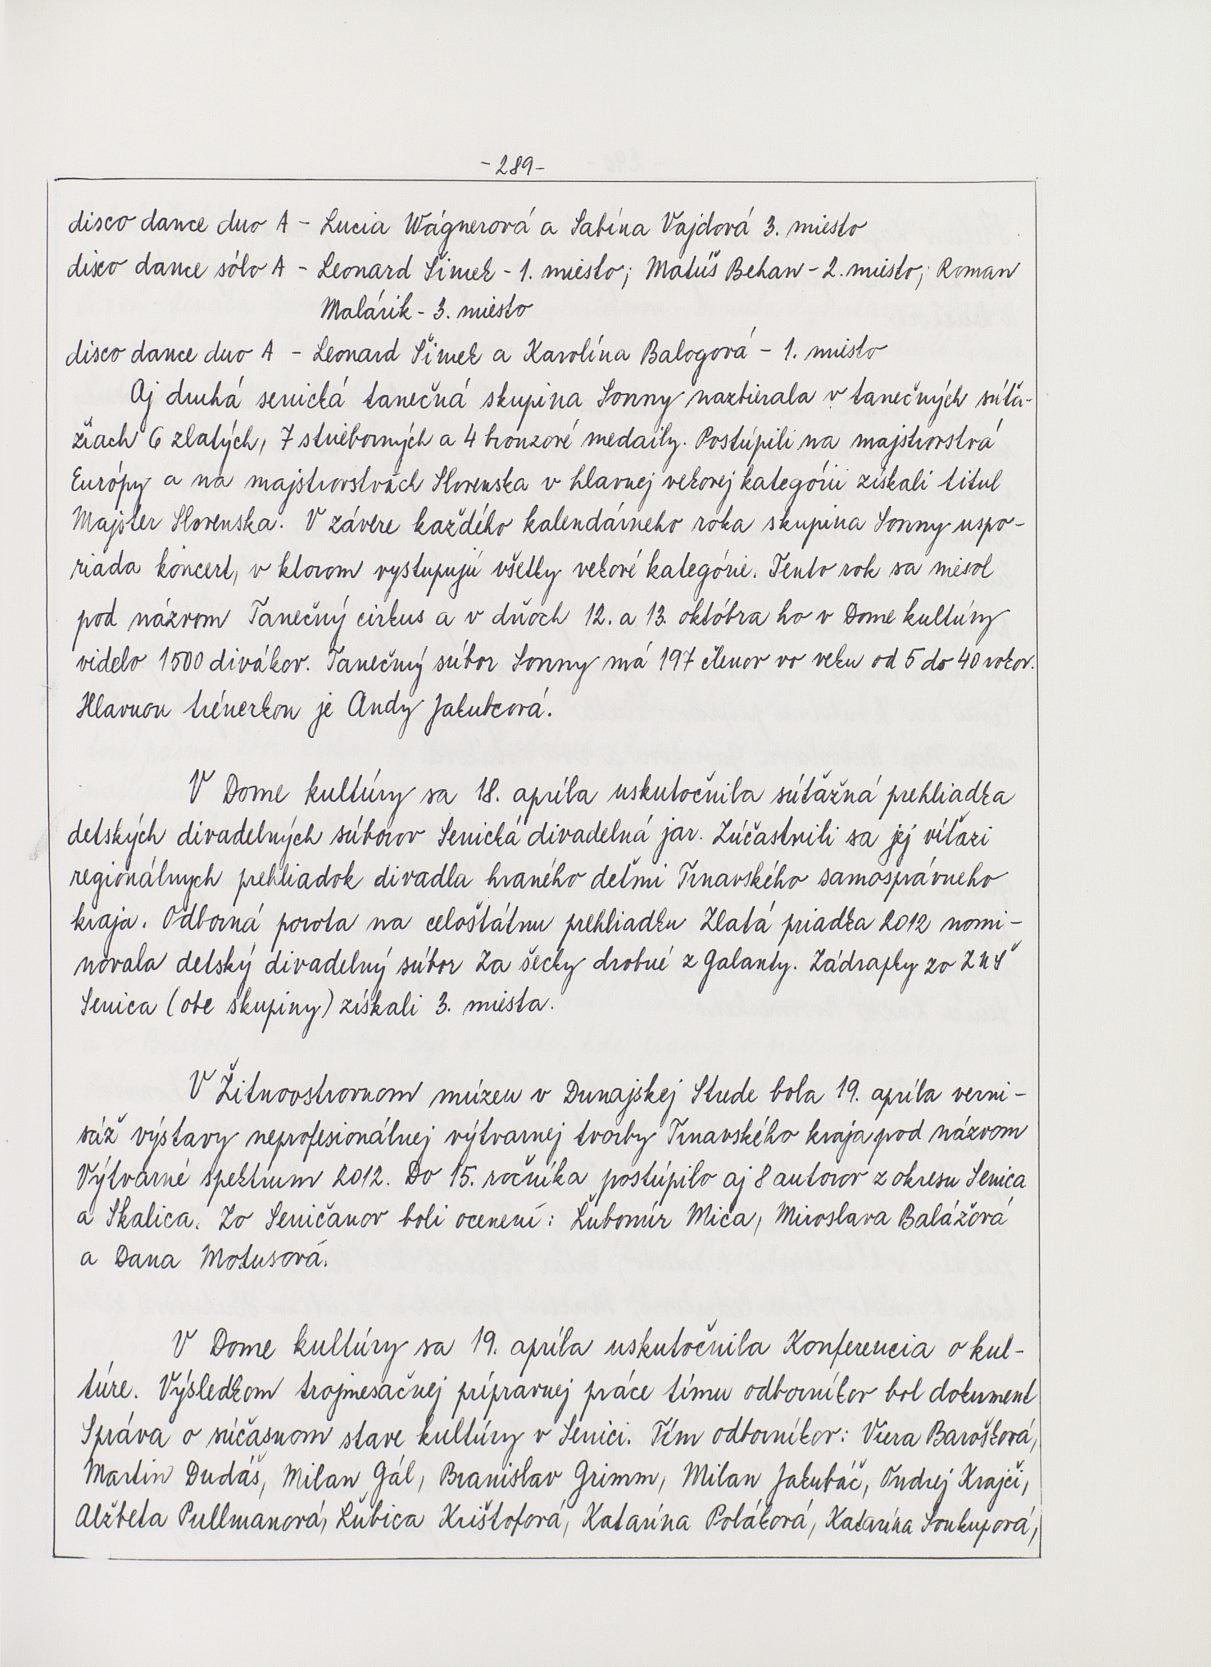 -289-
disco dance duo A - Lucia Wágnerová a Sabína Vajdová 3. miesto
disco dance sólo A - Leonard Šimek - 1. miesto; Matúš Behan - 2. miesto; Roman
Malárik - 3. miesto
disco dance duo A - Leonard Šimek a Karolína Balogová - 1. miesto
Aj druhá senická tanečná skupina Sonny nazbierala v tanečných súťa-
žiach 6 zlatých, 7 strieborných a 4 bronzové medaily. Postúpili na majstrovstvá
Európy a na majstrovstvách Slovenska v hlavnej vekovej kategórii získali titul
Majster Slovenska. V závere každého kalendárneho roka skupina Sonny uspo-
riada koncert, v ktorom vystupujú všetky vekové kategórie. Tento rok sa niesol
pod názvom Tanečný cirkus a v dňoch 12. a 13. októbra ho v Dome kultúry
videlo 1500 divákov. Tanečný súbor Sonny má 197 členov vo veku od 5 do 40 rokov.
Hlavnou trénerkou je Andy Jakubcová.
V Dome kultúry sa 18. apríla uskutočnila súťažná prehliadka
detských divadelných súborov Senická divadelná jar. Zúčastnili sa jej víťazi
regionálnych prehliadok divadla hraného deťmi Trnavského samosprávneho
kraja. Odborná porota na celoštátnu prehliadku Zlatá priadka 2012 nomi-
novala detský divadelný súbor Za šecky drobné z Galanty. Zádrapky zo ZUŠ
Senica (obe skupiny) získali 3. miesta.
V Žitnoostrovnom múzeu v Dunajskej Strede bola 19. apríla verni-
sáž výstavy neprofesionálnej výtvarnej tvorby Trnavského kraja pod názvom
Výtvarné spektrum 2012. Do 15. ročníka postúpilo aj 8 autorov z okresu Senica
a Skalica. Zo Seničanov boli ocenení: Ľubomír Mica, Miroslava Balážová
a Dana Motusová.
V Dome kultúry sa 19. apríla uskutočnila Konferencia o kul-
túre. Výsledkom trojmesačnej prípravnej práce tímu odborníkov bol dokument
Správa o súčasnom stave kultúry v Senici. Tím odborníkov: Viera Barošková,
Martin Dudáš, Milan Gál, Branislav Grimm, Milan Jakubáč, Ondrej Krajči,
Alžbeta Pullmanová, Ľubica Krištofová, Katarína Poláková, Katarína Soukupová,